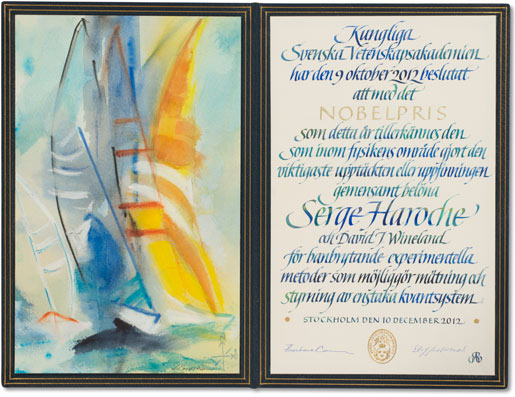 Kungliga
Svenska Vetenskapsakademien
har den 9 oktober 2012 beslutat
att med det
NOBELPRIS
som detta år tillerkännes den
som inom fysikens område gjort den
viktigaste upptäckten eller uppfinningen
gemensamt belöna
Serge Haroche
och David J Wineland
för banbrytande experimentella
metoder som möjliggör mätning och
styrning av enstaka kvantsystem
STOCKHOLM DEN 10 DECEMBER 2012